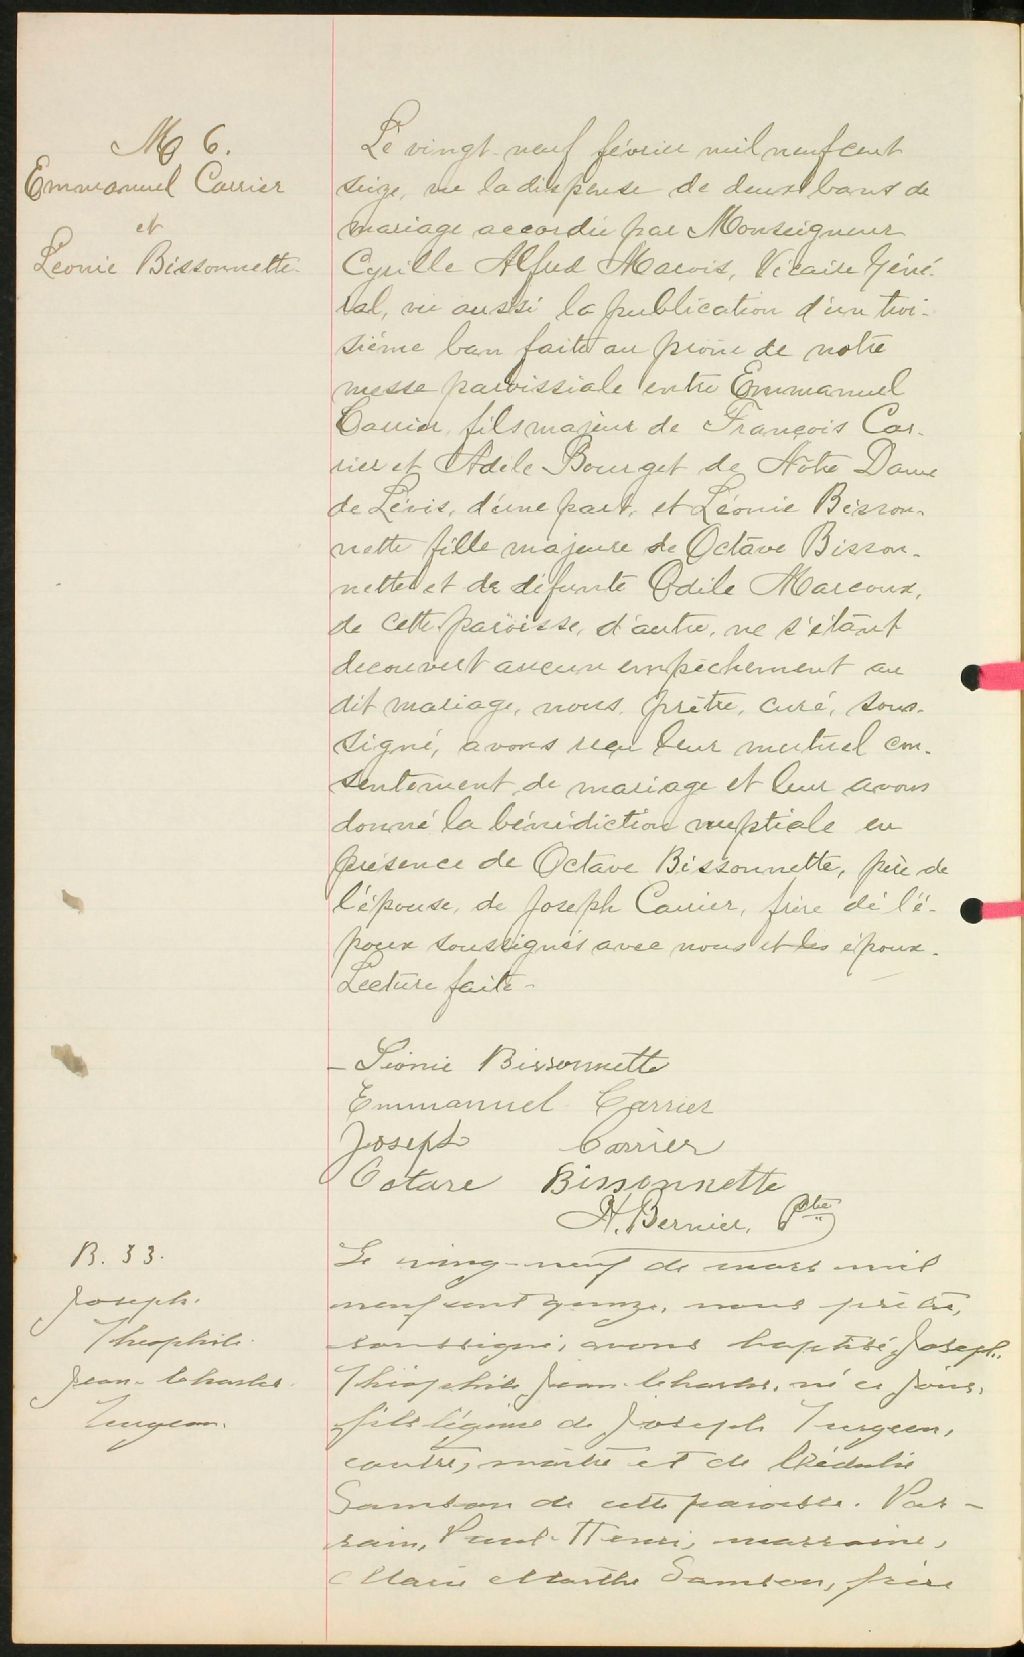 M 6.
Emmanuel Carrier
et
Léonie Bissonnette.
Le vingt-neuf février mil neuf cent
seize, vu la dispense de deux bans de
mariage accordée par Monseigneur
Cyrille Alfred Marois, Vicaire Géné-
ral, vu aussi la publication d'un troi-
sième ban faite au prône de notre
messe paroissiale entre Emmanuel
Carrier, fils majeur de François Car-
rier et Adele Bourget de Notre Dame
de Lévis, d'une part, et Léonie Bisson-
nette fille majeure de Octave Bisson-
nette et de défunte Odile Marcoux,
de cette paroisse, d'autre, ne s'étant
decouvert aucun empêchement au
dit mariage, nous, prêtre, curé, sous-
signé, avons reçu leur mutuel con-
sentement de mariage et leur avons
donné la bénédiction nuptiale en
présence de Octave Bissonnette, père de
l'épouse, de Joseph Carrier, frère de l'é-
poux soussignés avec nous et les époux.
Lecture faite-
Léonie Bissonnette
Emmanuel Carrier
Joseph Carrier
Octave Bissonnette
H. Bernier, Ptre
B. 33.
Joseph.
Théophile.
Jean-Charles.
Turgeon.
Le ving-neuf de mars mil
neuf cent quinze, nous prêtre,
soussigné, avons baptisé Joseph.
Théophile Jean-Charles, né ce jour,
fils légime de Joseph Turgeon,
contre, maître et de Rédulie
Samson de cette paroisse. Par-
rain, Paul-Henri, marraine,
Marie Marthe Samson, frère